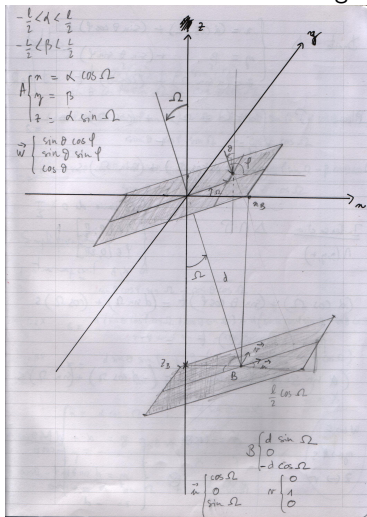 -ℓ/2 < α < ℓ/2
-L/2 < β < L/2
A { x = α cos Ω
y = β
z = α sin Ω
w⃗ { sin θ cos φ
sin θ sin φ
cos θ
z
y
Ω
θ
φ
x
x_B
Ω
d
z_B
B
ℓ/2 cos Ω
B { d sin Ω
0
-d cos Ω
u⃗ { cos Ω
0
sin Ω
v { 0
1
0